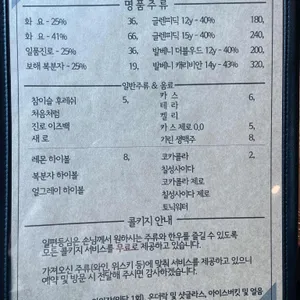 명품주류
화 요 - 25% 36,
화 요 - 41% 66,
일품진로 - 25% 36,
보해 복분자 - 25% 19,
글렌피딕 12y - 40% 180,
글렌피딕 15y - 40% 240,
발베니 더블우드 12y - 40% 200,
발베니 캐리비안 14y - 43% 320,
일반주류 & 음료
참이슬 후레쉬 5,
처음처럼
진로 이즈백
새 로
카 스 6,
테 라
켈 리
카 스 제로 0.0
기린 생맥주 8,
레몬 하이볼 8,
복분자 하이볼
얼그레이 하이볼
코카콜라 2,
칠성사이다
코카콜라 제로
칠성사이다 제로
토닉워터
콜키지 안내
일편등심은 손님께서 원하시는 주류와 한우를 즐길 수 있도록
모든 콜키지 서비스를 무료로 제공하고 있습니다.
가져오신 주류(와인, 위스키 등)에 맞춰 서비스를 제공하고 있으니
예약 및 방문 시 전달해 주시면 감사하겠습니다.
1회), 온더락 및 샷글라스, 아이스버킷 및 얼음